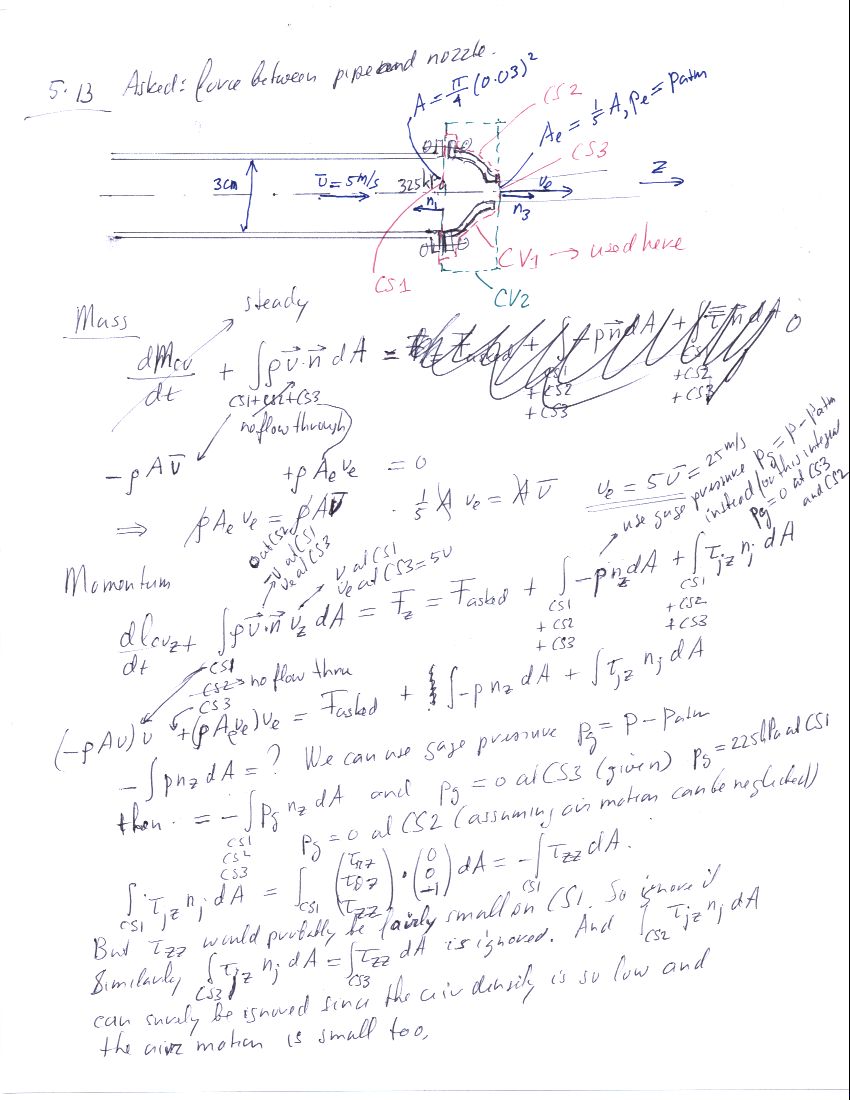 5.13 Asked: force between pipe and nozzle.
A = π/4 (0.03)²
CS2
A_e = 1/5 A, p_e = patm
CS3
3cm
v̄ = 5 m/s
325 kPa
v_e
z
n_1
n_3
CV1 → used here
CS1
CV2
Mass
steady
dM_cv/dt + ∫ρ v⃗·n⃗ dA = 0
CS1+CS2+CS3
no flow through
-ρAv̄ +ρA_e v_e = 0
⇒ ρA_e v_e = ρAv̄ · 1/5 A v_e = A v̄ v_e = 5v̄ = 25 m/s
use gage pressure p_g = p - patm
instead for this integral
p_g = 0 at CS3
and CS2
0 at CS2
-v at CS1
v_e at CS3
v at CS1
v_e at CS3 = 5v
Momentum
dI_cvz/dt + ∫ρ v⃗·n⃗ v_z dA = F_z = F_asked + ∫ -p n_z dA + ∫ τ_jz n_j dA
CS1 CS1 CS1
CS2 → no flow thru + CS2 + CS2
CS3 + CS3 + CS3
(-ρAv) v + (ρA_e v_e) v_e = F_asked + ∫ -p n_z dA + ∫ τ_jz n_j dA
- ∫ p n_z dA = ? We can use gage pressure p_g = p - patm
then = - ∫ p_g n_z dA and p_g = 0 at CS3 (given) p_g = 225 kPa at CS1
CS1
CS2
CS3
p_g = 0 at CS2 (assuming air motion can be neglected)
∫_CS1 τ_jz n_j dA = ∫_CS1 (τ_rz τ_θz τ_zz) · (0 0 -1) dA = - ∫_CS1 τ_zz dA.
But τ_zz would probably be fairly small on CS1. So ignore it
Similarly ∫_CS3 τ_jz n_j dA = ∫_CS3 τ_zz dA is ignored. And ∫_CS2 τ_jz n_j dA
can surely be ignored since the air density is so low and
the air motion is small too.